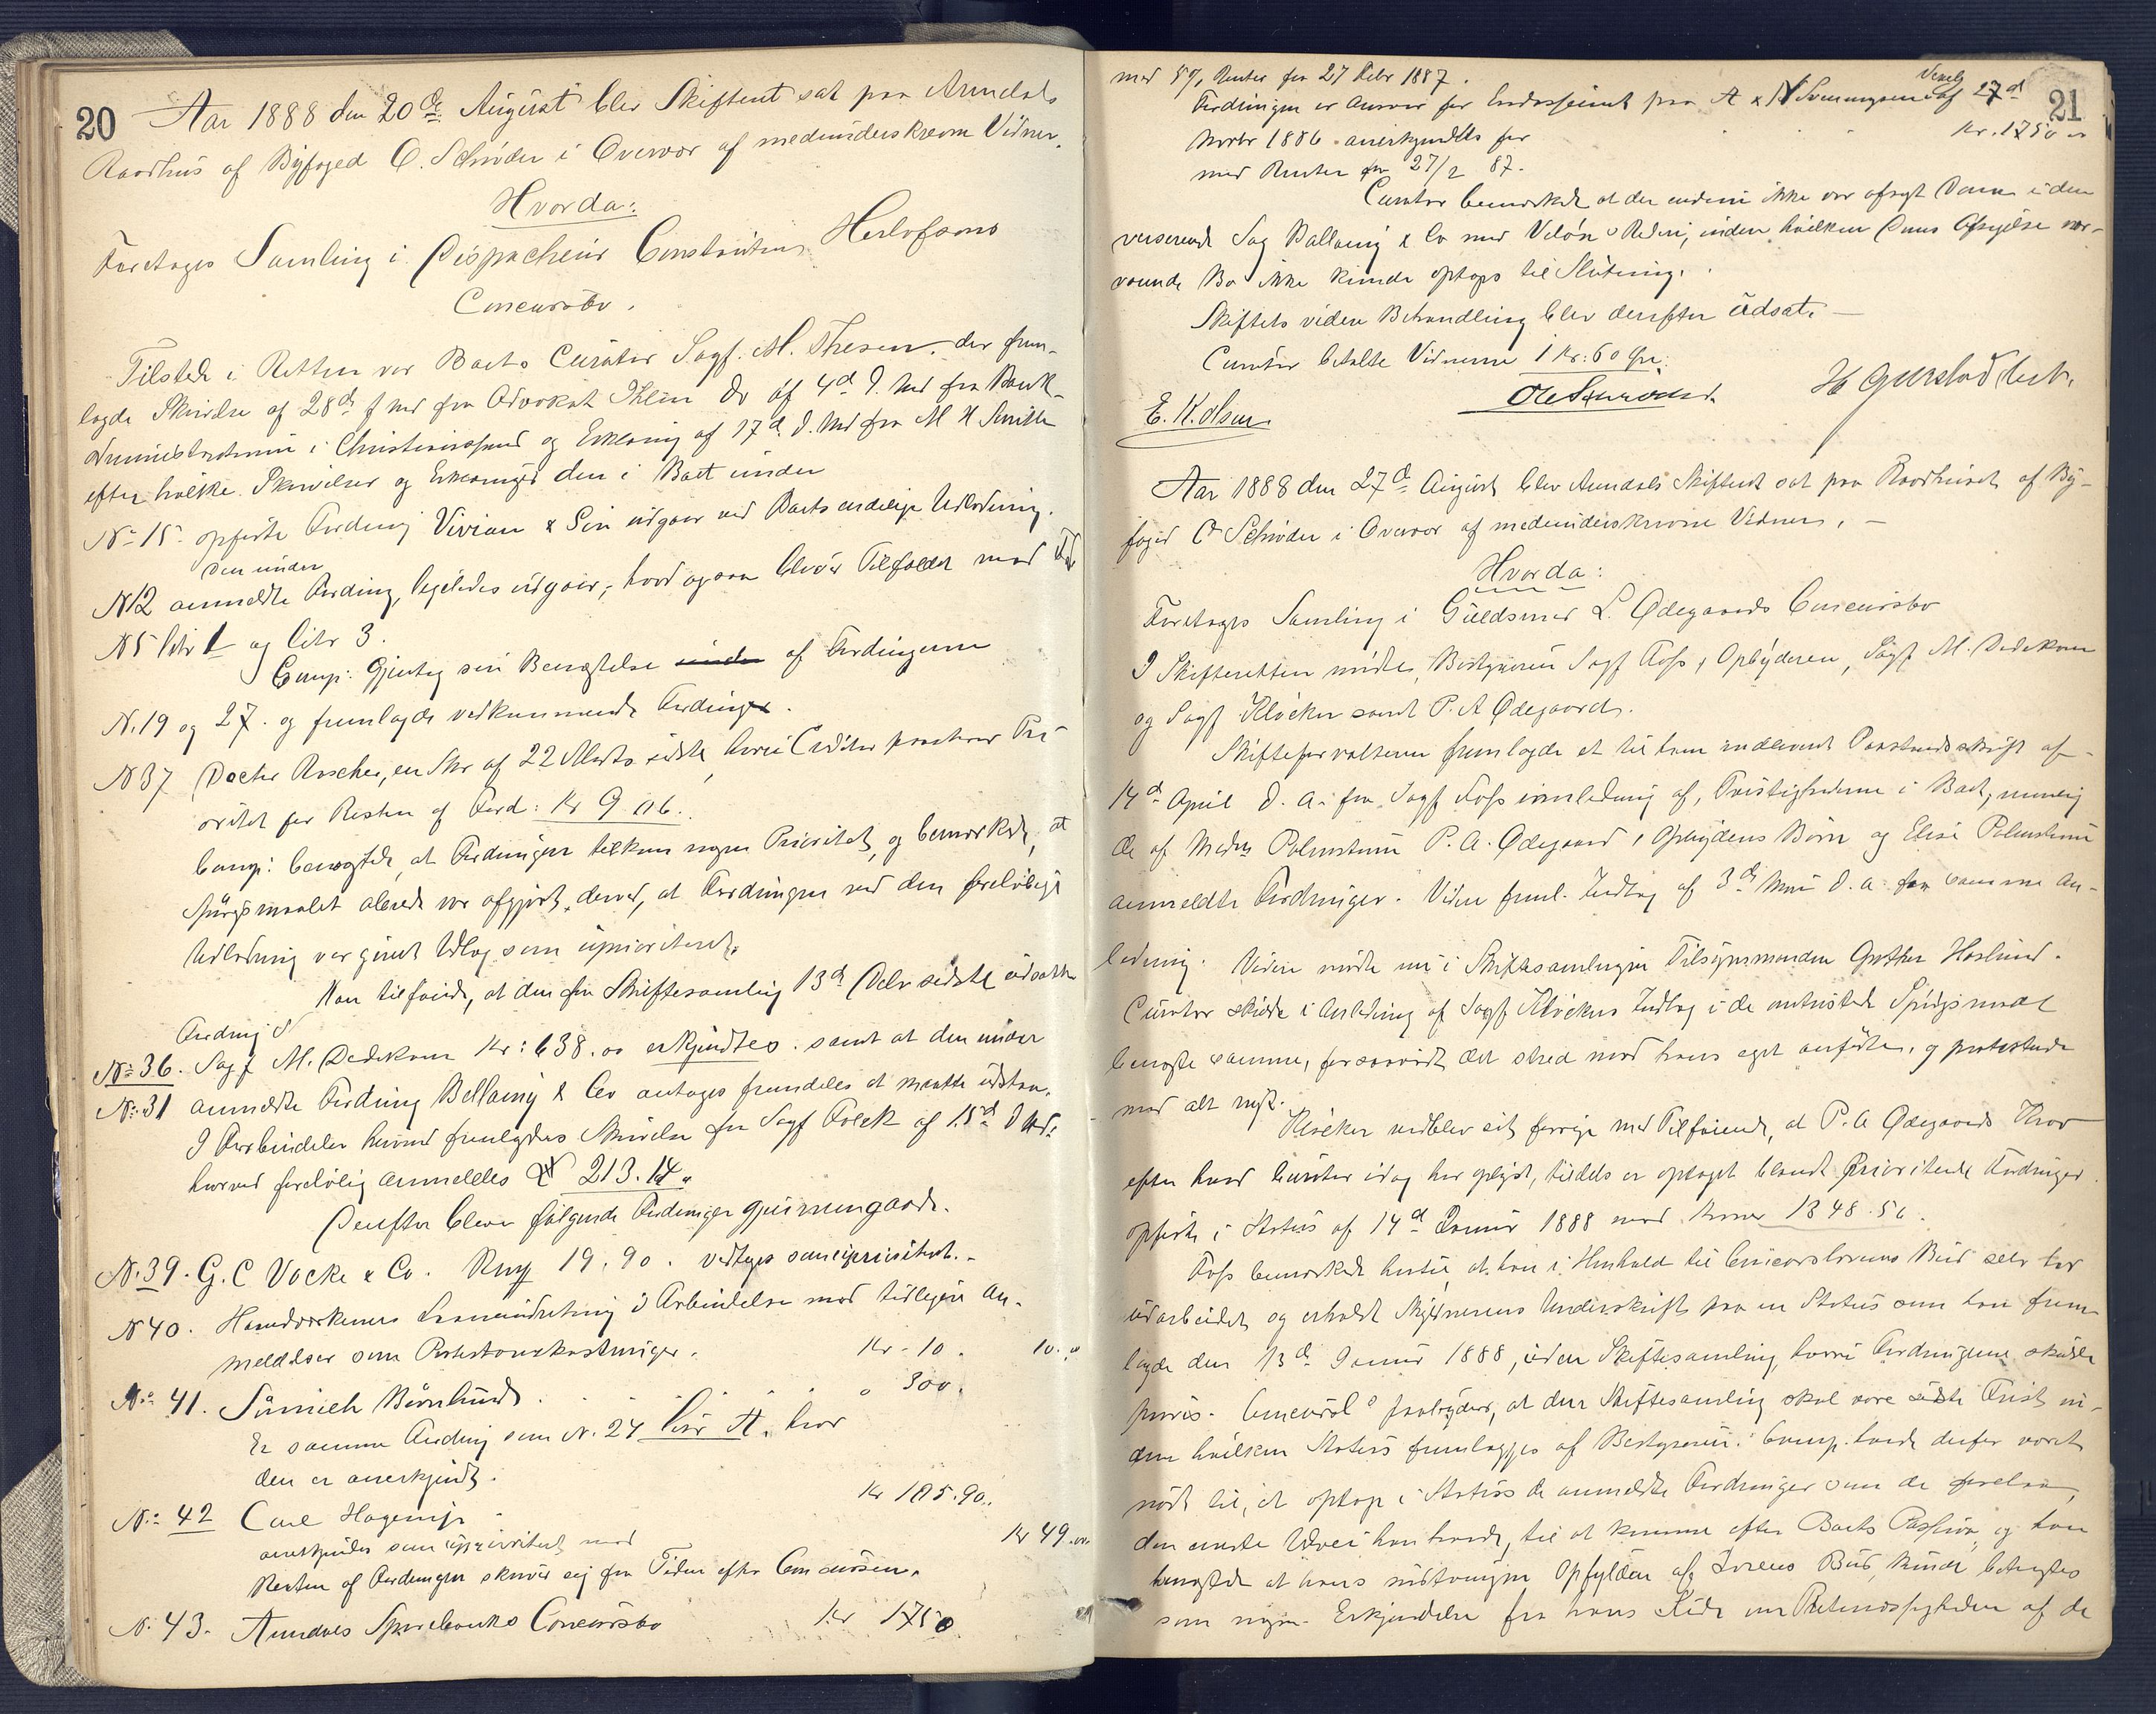 20
Aar 1888 den 20de August blev Skifteret sat paa Arendals
Raadhus af Byfoged C. Schrøder i Overvær af medunderskrevne Vidner.
Hvorda:
Foretoges Samling i Dispacheur Constantius Herlofsons
Concursbo.
Tilstede i Retten var Boets Curator Sagf. M. Thesen, der frem-
lagde Skrivelse af 28d f Md fra Advokat Klein Do af 4d d. Md fra Bank-
administrationen i Christianssand og Erklæring af 17d d. Md fra M H Smith
efter hvilke Skrivelser og Erklæringer den i Boet under
No 15 opførte Fordring Vivian & Son udgaar ved Boets endelige Udlodning.
den under
N12 anmeldte Fording, ligeledes udgaar, hvad ogsaa bliver Tilfældet med
N5 litr 1 og litr 3.
Comp: Gjentog sin Benægtelse af Fordingerne
N.19 og 27. og fremlagde vedkommende Fordinger.
N37 Doctor Roscher, en Skr af 22 Marts sidste, hvori Creditor paastaar Pri-
oritet for Resten af Ford: Kr 9.06.
Comp: benægtede, at Fordringen tilkom nogen Prioritet, og bemærkede, at
Spørgsmaalet allerede var afgjort derved, at Fordringen ved den foreløbige
Udlodning var givet Udlæg som uprioriteret.
Han tilføiede, at den fra Skiftesamling 13d Debr sidste udsatte
Fordring
No 36. Sagf M. Dedekam Kr: 638.00 erkjendtes. samt at den under
No 31 anmeldte Fordring Bellamy & Co antages fremdeles at maatte udstaa.
I Forbindelse hermed fremlagdes Skrivelse fra Sagf Falck af 15d d Md.
hvorved foreløbig anmeldtes £ 213.14.
Derefter bleve følgende Fordringer gjennemgaaede.
N.39. G. C Vocke & Co. Rmf 19.90. vedtoges som uprioriteret.
N 40. Haandværkernes Laaneindretning i Forbindelse med tidligere An-
meldelser som Protestomkostninger. Kr. 10. 10.
No 41. Sünnich Børnlund " 300.
Er samme Fordring som N. 24 Litr A, hvor
den er anerkjendt.
No 42 Carl Hagerup Kr 185.90.
anerkjendes som uprioriteret med Kr 49.00
Resten af Fordringen skriver sig fra Tiden efter Concursen.
N. 43. Arendals Sparebanks Concursbo Kr 1750
21
med 5%, Renter fra 27 Febr 1887.
Vexels
Fordringen er Ansvar for Endossement paa A & N Svenningsens af 27d
Novbr 1886. anerkjendtes for Kr. 1750
med Renter fra 27/2 87.
Curator bemærkede at der endnu ikke var afsagt Dom i den
verserende Sag Bellamy & Co mod Rederi, inden hvilken Doms Afsigelse nær-
værende Bo ikke kunde optages til Slutning.
Skiftets videre Behandling blev derefter udsat.
Curator betalte Vidnerne 1 Kr: 60 Øre.
E. K. Olsen.
Aar 1888 den 27d August blev Arendals Skifteret sat paa Raadhuset af By-
foged C Schrøder i Overvær af medunderskrevne Vidner.
Hvorda:
Foretoges Samling i Guldsmed L. Ødegaards Concursbo
I Skifteretten mødte, Bestyreren Sagf Foss, Opbyderen, Sagf M. Dedekam
og Sagf Kløcker samt P. A Ødegaard.
Skifteforvalteren fremlagde et til ham indleveret Paastandsskrift af
14d April d. A. fra Sagf Foss i Anledning af, Tvistighederne i Boet, nemlig
de af Madm Palmstrøm P. A. Ødegaard, Opbyderens Børn og Elise Palmstrøm
anmeldte Fordringer. Videre freml. Indlæg af 3d Mai d. a. samme An-
ledning. Videre mødte nu i Skiftesamlingen Tilsynsmanden Gunther Haslund.
Curator skulde i Anledning af Sagf Kløckers Indlæg i de omtvistede Spørgsmaal
benægte samme, forsaavidt det stred mod hans eget anførte, og protesterede
mod alt nyt.
Kløcker vedblev sit forrige med Tilføiende, at P. A Ødegaards Krav
efter hvad Curator idag har oplyst, tildels er optaget blandt prioriterede Fordringer
opførte i Status af 14d Januar 1888 med Kroner 1848.50.
Foss bemærkede hertil, at han i Henhold til Concurslovens Bud selv har
udarbeidet og erholdt Skyldnerens Underskrift paa en Status som han frem-
lagde den 13d Januar 1888, i den Skiftesamling, hvori Fordringerne skulde
prøves. Concursl. paabyder, at den Skiftesamling skal være sidste Frist in-
den hvilken Status fremlægges af Bestyreren. Comp. havde derfor været
nødt til, at optage i Status de anmeldte Fordringer som de forelaa,
den eneste Udvei han havde, til at komme efter Boets Passiva, og han
benægtede at hans nødtvungne Opfyldelse af Lovens Bud kunde betragtes
som nogen Erkjendelse fra hans Side om Retmæssigheden af de